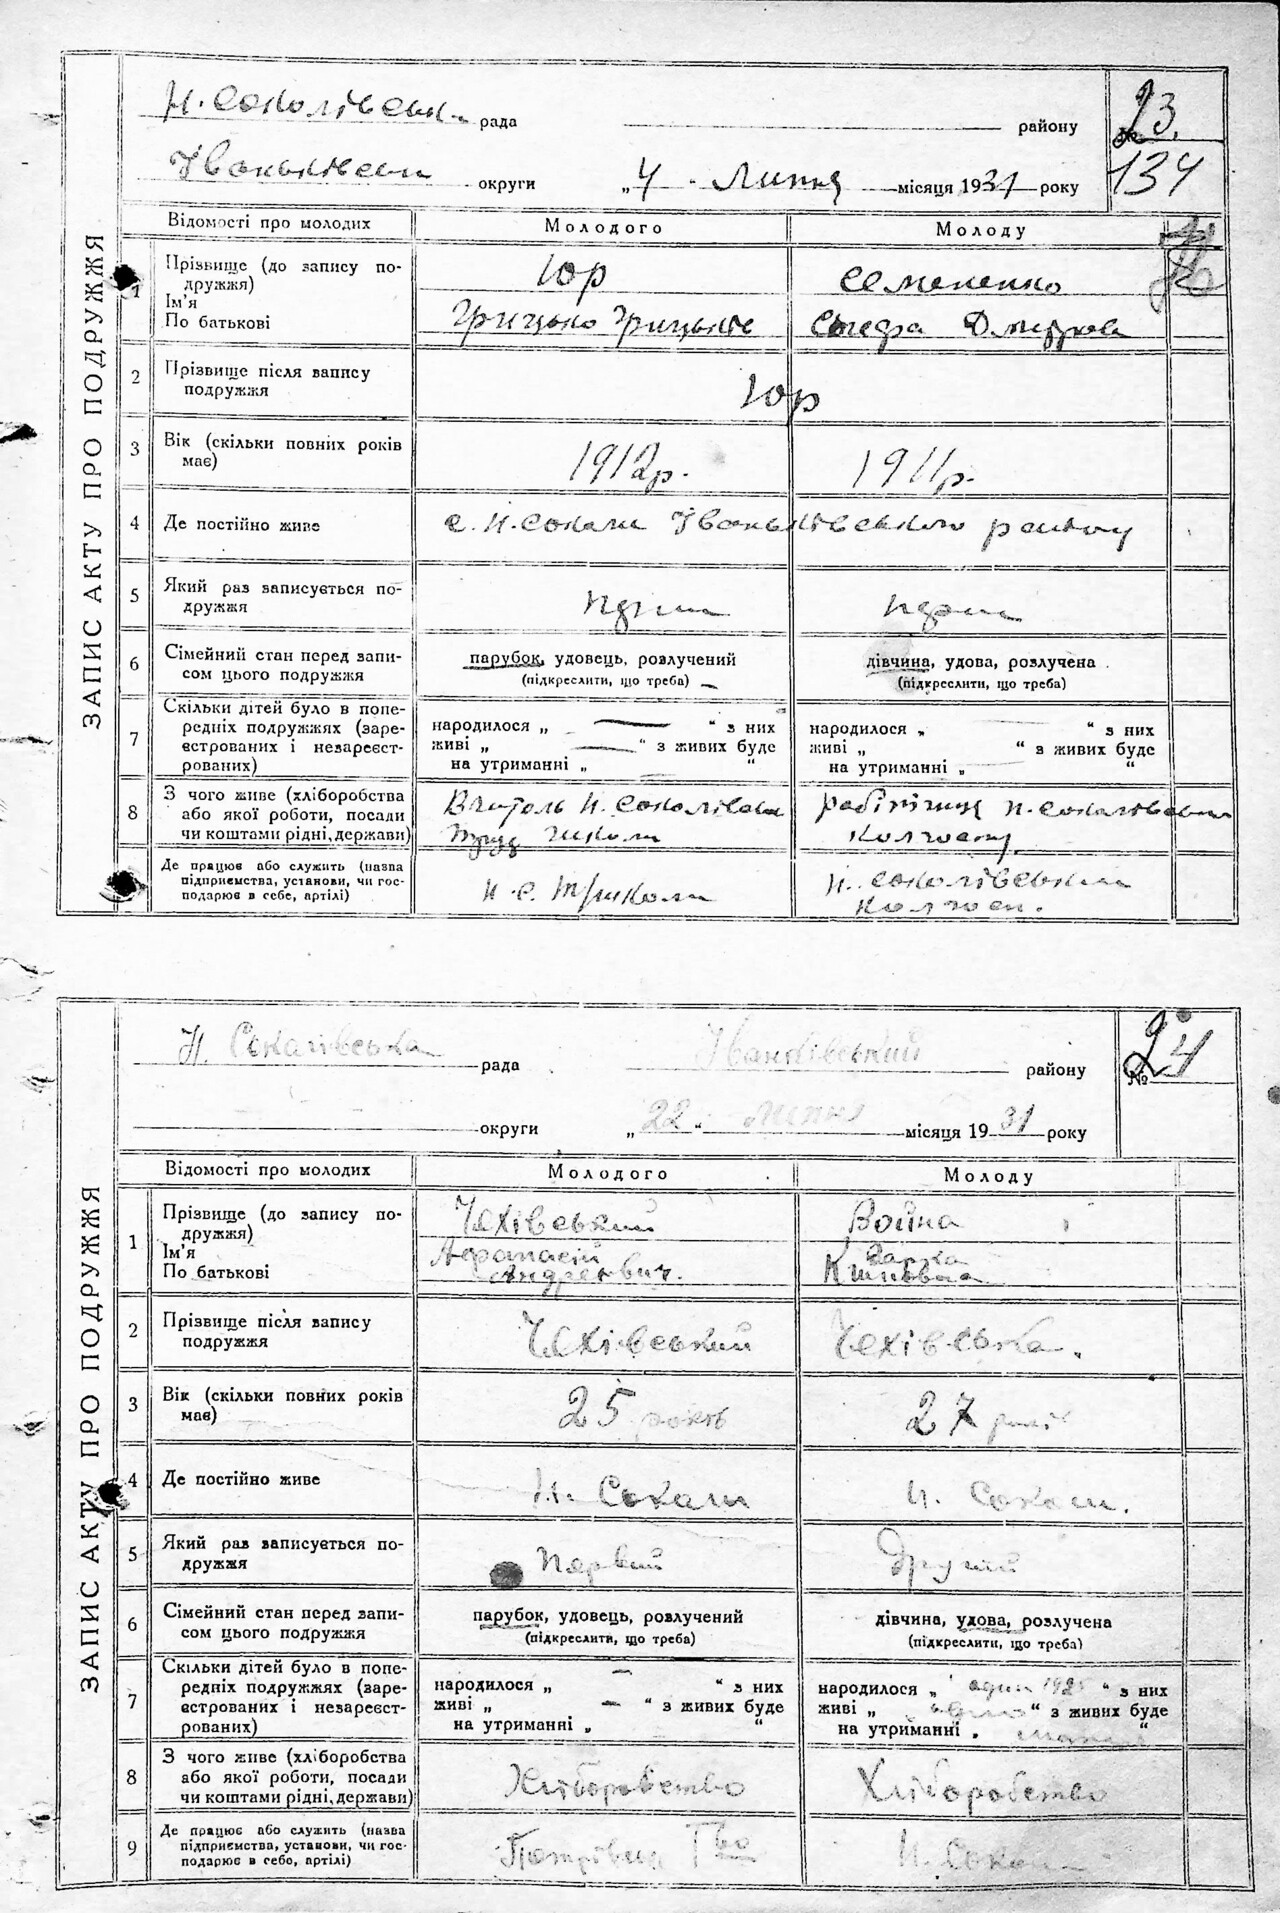 ЗАПИС АКТУ ПРО ПОДРУЖЖЯ
Н. Соколівськ. рада района району № 23.
округи „4" Липня місяця 1931 року 134
Відомості про молодих Молодого Молоду
1 Прізвище (до запису подружжя) Юр Семененко
Ім'я
По батькові Грицько Грицьків Дмитрова
2 Прізвище після запису подружжя Юр
3 Вік (скільки повних років має) 1912р. 1911р.
4 Де постійно живе с. Н. Сокали Іваньківського району
5 Який раз записується подружжя
6 Сімейний стан перед записом цього подружжя парубок, удовець, розлучений дівчина, удова, розлучена
(підкреслити, що треба) (підкреслити, що треба)
7 Скільки дітей було в попередніх подружжях (зареєстрованих і незареєстрованих) народилося „ — " з них народилося „ " з них
живі „ — " з живих буде живі „ " з живих буде
на утриманні „ " на утриманні „ "
8 З чого живе (хліборобства або якої роботи, посади чи коштами рідні, держави) Вчитель Н. Соколівська школи робітниця Н. Соколівськ
Де працює або служить (назва підприємства, установи, чи господарює в себе, артілі) Н. С. Н. Соколівським
ЗАПИС АКТУ ПРО ПОДРУЖЖЯ
Н. Сокалівська рада Іванківський району № 24
округи „22" липня місяця 1931 року
Відомості про молодих Молодого Молоду
1 Прізвище (до запису подружжя) Чехівський Война
Ім'я Афанасій
По батькові Андреєвич.
2 Прізвище після запису подружжя Чехівський Чехівська.
3 Вік (скільки повних років має) 25 років 27 років
4 Де постійно живе Н. Сокали Н. Сокали.
5 Який раз записується подружжя Первий Другий
6 Сімейний стан перед записом цього подружжя парубок, удовець, розлучений дівчина, удова, розлучена
(підкреслити, що треба) (підкреслити, що треба)
7 Скільки дітей було в попередніх подружжях (зареєстрованих і незареєстрованих) народилося „ — " з них народилося „ один " з них
живі „ — " з живих буде живі „ " з живих буде
на утриманні „ " на утриманні „ "
8 З чого живе (хліборобства або якої роботи, посади чи коштами рідні, держави) Хліборобство Хліборобство
9 Де працює або служить (назва підприємства, установи, чи господарює в себе, артілі) Н. Сокали